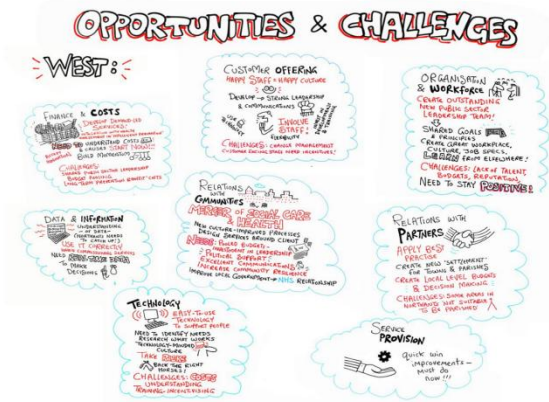 OPPORTUNITIES & CHALLENGES
WEST:
FINANCE & COSTS
NEED TO UNDERSTAND COSTS
& CAUSES START NOW!!
BUILD MOMENTUM
CHALLENGES:
SHARED PUBLIC SECTOR LEADERSHIP
BUDGET POOLING
CUSTOMER OFFERING
HAPPY STAFF = HAPPY CULTURE
DEVELOP → STRONG LEADERSHIP
& COMMUNICATIONS
INVOLVE
STAFF!
FLEXIBILITY
CHALLENGES: CHANGE MANAGEMENT
CUSTOMER FACING STAFF NEED INCENTIVES!
ORGANISATION
& WORKFORCE
CREATE OUTSTANDING
NEW PUBLIC SECTOR
LEADERSHIP TEAM!
SHARED GOALS
& PRINCIPLES
CREATE GREAT WORKPLACE,
CULTURE, JOB SPECS,
LEARN FROM ELSEWHERE!
CHALLENGES: LACK OF TALENT,
BUDGETS, REPUTATION.
NEED TO STAY POSITIVE!
DATA & INFORMATION
UNDERSTANDING
OF DATA-
NORTHANTS NEEDS
TO CATCH UP!
USE IT CORRECTLY
WHEN COMMISSIONING SERVICES
NEED REAL TIME DATA
TO MAKE
DECISIONS
RELATIONS WITH
COMMUNITIES
MERGER OF SOCIAL CARE
& HEALTH
NEW CULTURE - IMPROVED PROCESSES
DESIGN SERVICES AROUND CLIENT
NEEDS: POOLED BUDGET -
INVESTMENT IN LEADERSHIP
POLITICAL SUPPORT!
EXCELLENT COMMUNICATIONS!
INCREASE COMMUNITY RESILIENCE
IMPROVE LOCAL GOVERNMENT → NHS RELATIONSHIP
RELATIONS WITH
PARTNERS
APPLY BEST
PRACTISE
CREATE NEW 'SETTLEMENT'
FOR TOWNS & PARISHES
CREATE LOCAL LEVEL BUDGETS
& DECISION MAKING
CHALLENGES: SOME AREAS IN
NORTHANTS NOT SUITABLE
TO BE PARISHED
TECHNOLOGY
EASY-TO-USE
TECHNOLOGY
TO SUPPORT PEOPLE
NEED TO IDENTIFY NEEDS
RESEARCH WHAT WORKS
TECHNOLOGY-MINDED
CULTURE
TAKE RISKS
BACK THE RIGHT
HORSES!
CHALLENGES: COSTS
UNDERSTANDING
TRAINING - INCENTIVISING
SERVICE
PROVISION
quick win
improvements -
must do
now!!!